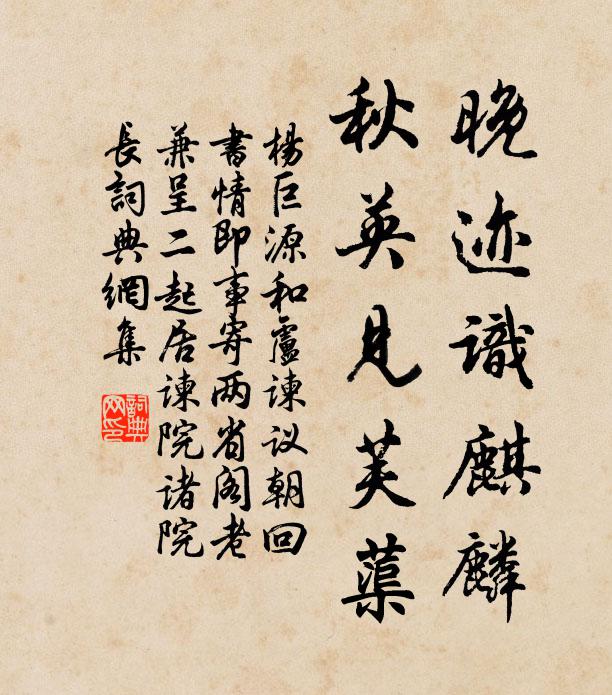 晚迹識麒麟
秋英見芙蕖
楊巨源和盧諫议朝回
書情即事寄两省阁老
兼呈二起居諫院诸院
長詞典網集
詞典
网印